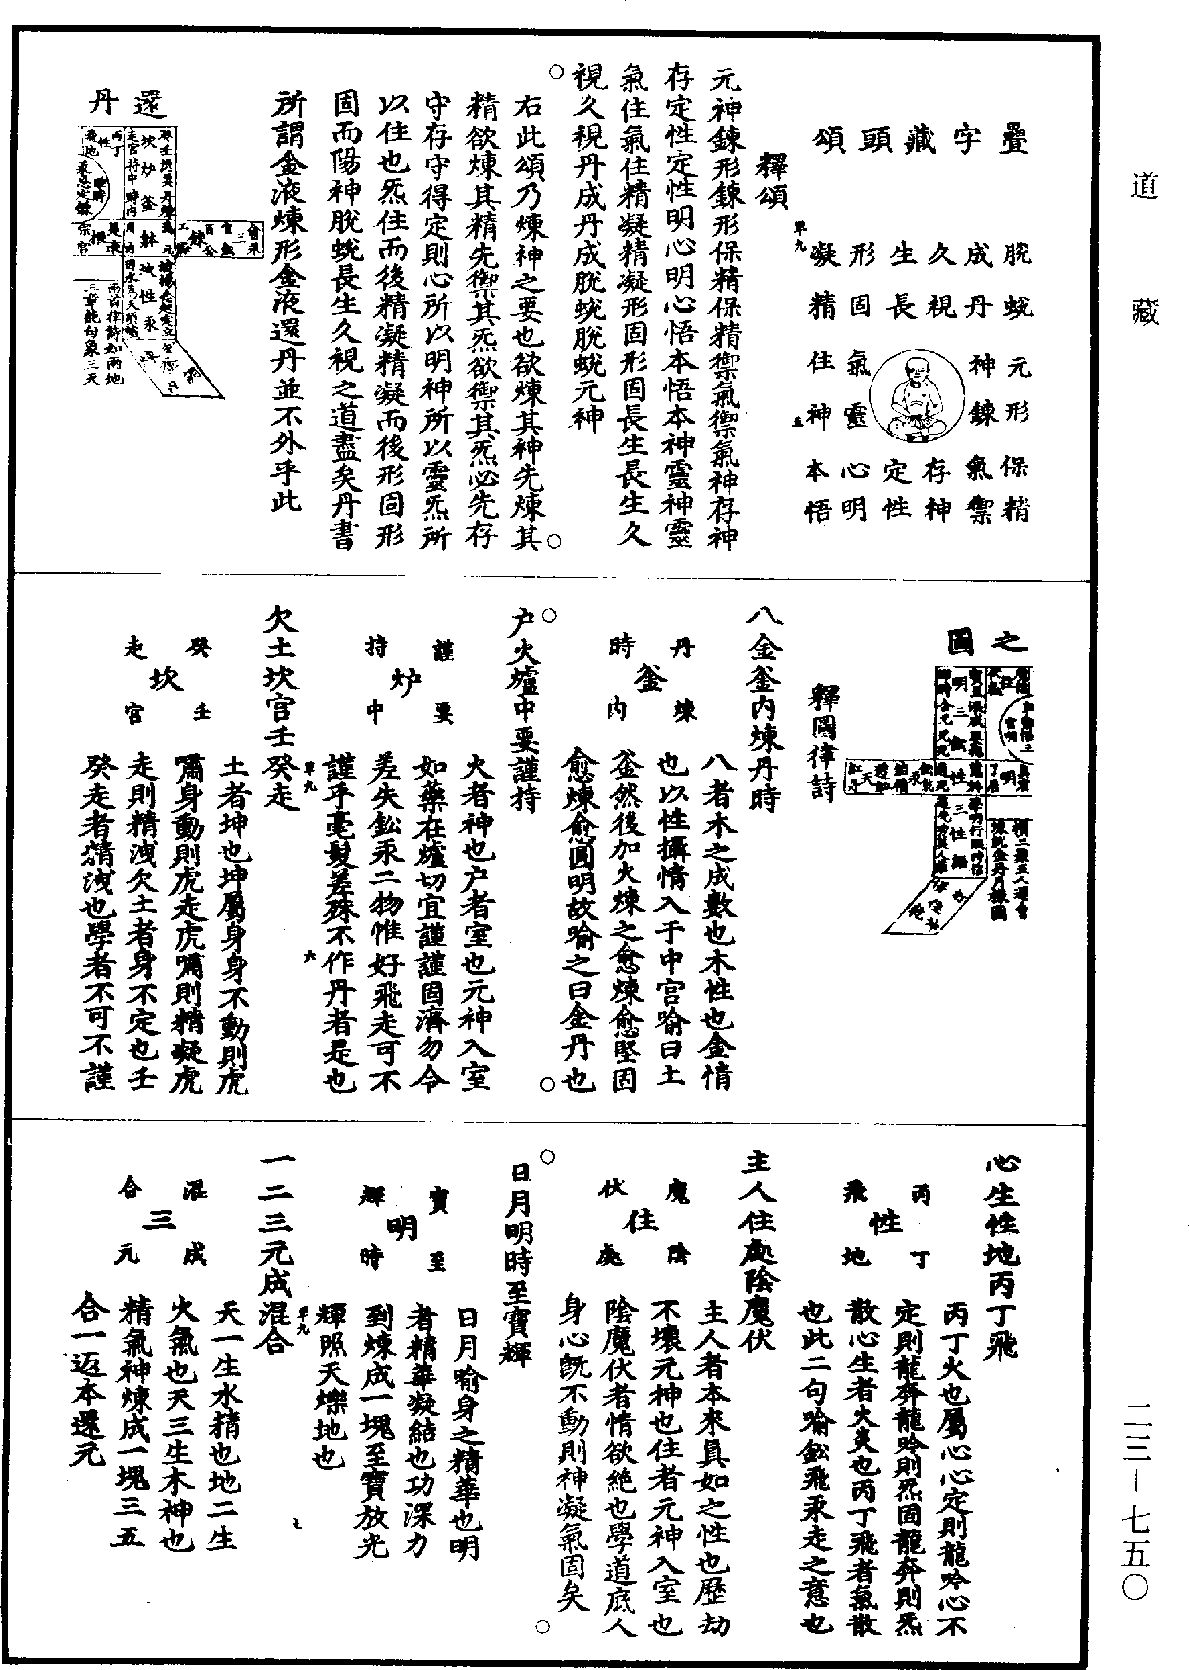 道藏
二三—七五〇
疊字藏頭頌
脫蛻　元形　保精
成丹　神鍊　氣禦
久視　存神
生長　定性
形固　氣靈　心明
凝精　住神　本悟
釋頌
元神鍊形鍊形保精保精禦氣禦氣神存神
存定性定性明心明心悟本悟本神靈神靈
氣住氣住精凝精凝形固形固長生長生久
視久視丹成丹成脫蛻脫蛻元神
右此頌乃煉神之要也欲煉其神先煉其
精欲煉其精先禦其炁欲禦其炁必先存
守存守得定則心所以明神所以靈炁所
以住也炁住而後精凝精凝而後形固形
固而陽神脫蛻長生久視之道盡矣丹書
所謂金液煉形金液還丹並不外乎此
還丹
兩首律詩如兩地
三章龍句象三天
之圖
釋圖律詩
八金釜內煉丹時
丹煉
釜
時內
八者木之成數也木性也金情
也以性攝情入于中宮喻曰土
釜然後加火煉之愈煉愈堅固
愈煉愈圓明故喻之曰金丹也
户火爐中要謹持
謹要
炉
持中
火者神也户者室也元神入室
如藥在爐切宜謹謹固濟勿令
差失鉛汞二物惟好飛走可不
謹乎毫髮差殊不作丹者是也
欠土坎宮壬癸走
癸壬
坎
走宮
土者坤也坤屬身身不動則虎
嘯身動則虎走虎嘯則精凝虎
走則精洩欠土者身不定也壬
癸走者精洩也學者不可不謹
心生性地丙丁飛
丙丁
性
飛地
丙丁火也屬心心定則龍吟心不
定則龍奔龍吟則炁固龍奔則炁
散心生者火炎也丙丁飛者氣散
也此二句喻鉛飛汞走之意也
主人住處陰魔伏
魔陰
住
伏處
主人者本來真如之性也歷劫
不壞元神也住者元神入室也
陰魔伏者情欲絕也學道底人
身心旣不動則神凝氣固矣
日月明時至寶輝
寶至
明
輝時
日月喻身之精華也明
者精華凝結也功深力
到煉成一塊至寶放光
輝照天爍地也
一二三元成混合
混成
三
合元
天一生水精也地二生
火氣也天三生木神也
精氣神煉成一塊三五
合一返本還元